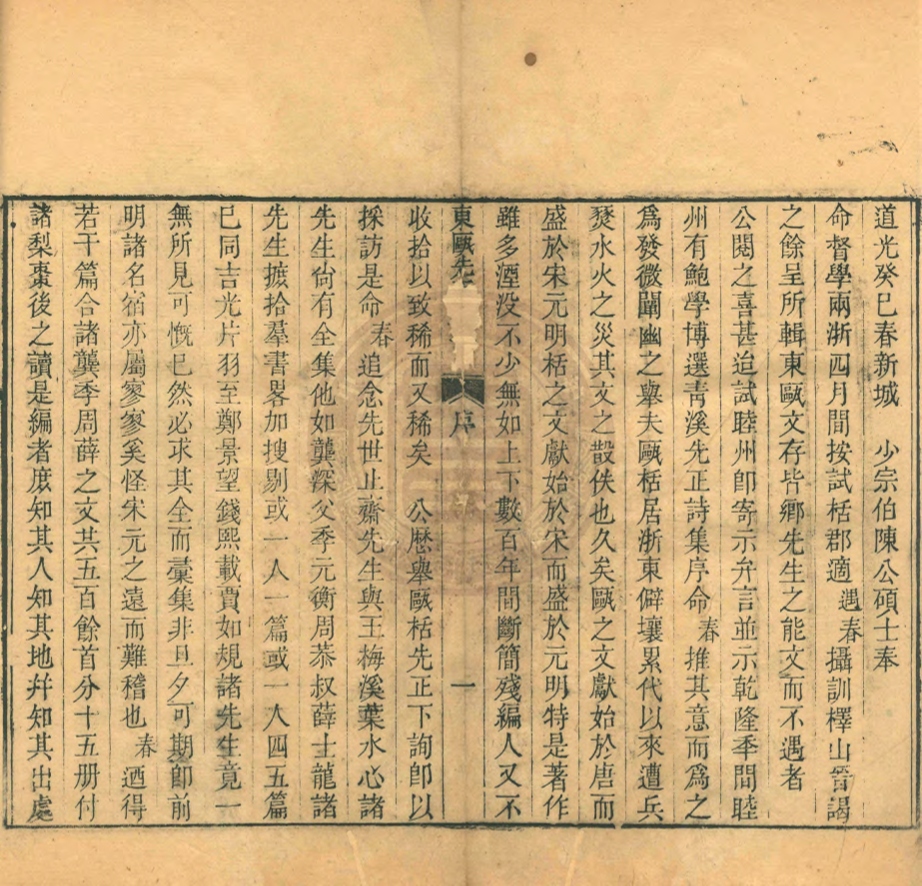 道光癸巳春新城　少宗伯陳公碩士奉
命督學兩浙四月間按試栝郡適遇春攝訓檡山晉謁
之餘呈所輯東甌文存皆鄉先生之能文而不遇者
公閱之喜甚迨試睦州卽寄示弁言並示乾隆季間睦
州有鮑學博選青溪先正詩集序命春推其意而爲之
爲發微闡幽之舉夫甌栝居浙東僻壤累代以來遭兵
燹水火之災其文之散佚也久矣甌之文獻始於唐而
盛於宋元明栝之文獻始於宋而盛於元明特是著作
雖多湮没不少無如上下數百年間斷簡殘編人又不
東甌先　序　一
收拾以致稀而又稀矣　公歴舉甌栝先正下詢卽以
採訪是命春追念先世止齋先生與王梅溪葉水心諸
先生尙有全集他如龔深父季元衡周恭叔薛士龍諸
先生摭拾羣書畧加搜剔或一人一篇或一人四五篇
已同吉光片羽至鄭景望錢熙載賈如規諸先生竟一
無所見可慨已然必求其全而彚集非旦夕可期卽前
明諸名宿亦屬寥寥奚怪宋元之遠而難稽也春迺得
若干篇合諸龔季周薛之文共五百餘首分十五册付
諸梨棗後之讀是編者庶知其人知其地幷知其出處